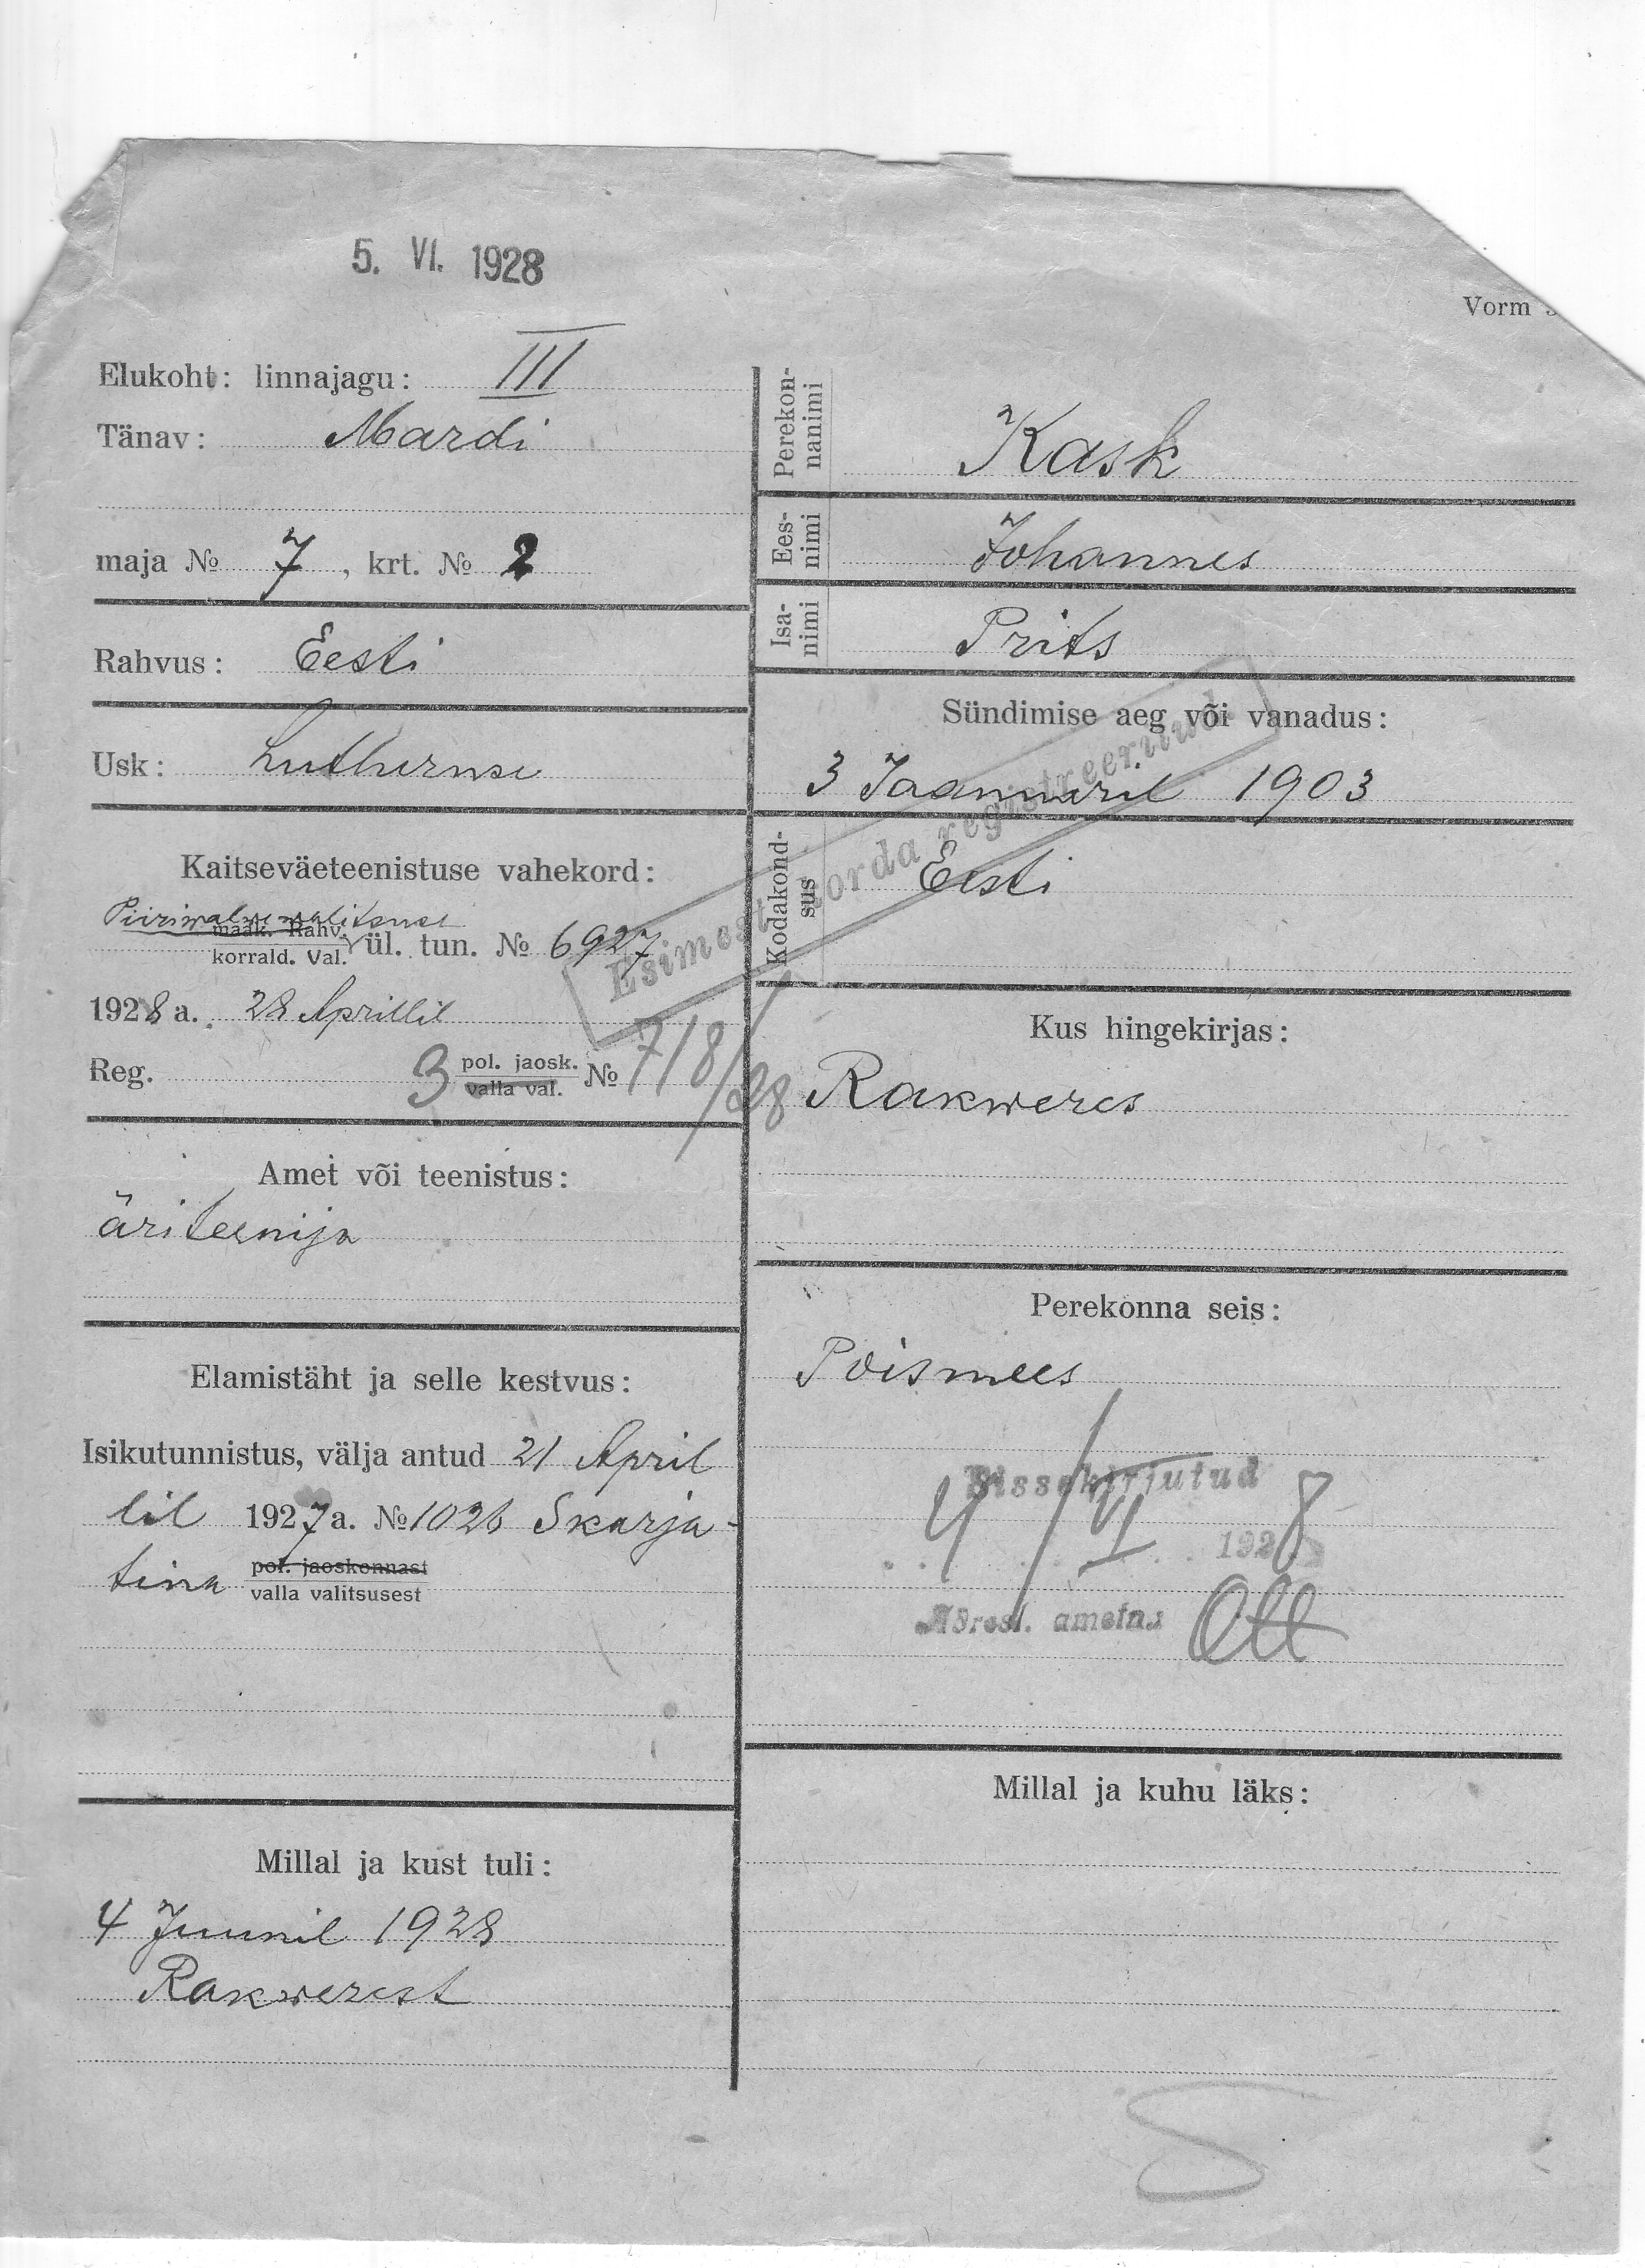 5. VI. 1928
Vorm
Elukoht: linnajagu: III
Tänav: Mardi
maja № 7, krt. № 2
Rahvus: Eesti
Usk: Lutheruse
Kaitseväeteenistuse vahekord:
Piirivalvevalitsuse
maak. Rahv.
korrald. Val. ül. tun. № 6927
1928 a. 28 Aprillil
Reg. 3 pol. jaosk. № 718/28
valla val.
Amet või teenistus:
äriteenija
Elamistäht ja selle kestvus:
Isikutunnistus, välja antud 21 April
lil 1927 a. № 1026 Skarja-
tina pol. jaoskonnast
valla valitsusest
Millal ja kust tuli:
4 Juunil 1928
Rakwerest
Perekon-
nanimi
Kask
Ees-
nimi
Johannes
Isa-
nimi
Prits
Sündimise aeg või vanadus:
3 Jaanuaril 1903
Esimest korda registreeritud
Kodakond-
sus
Eesti
Kus hingekirjas:
Rakweres
Perekonna seis:
Poismees
Sissekirjutud
4/VI 1928
Adresl. ametn. Ott
Millal ja kuhu läks: